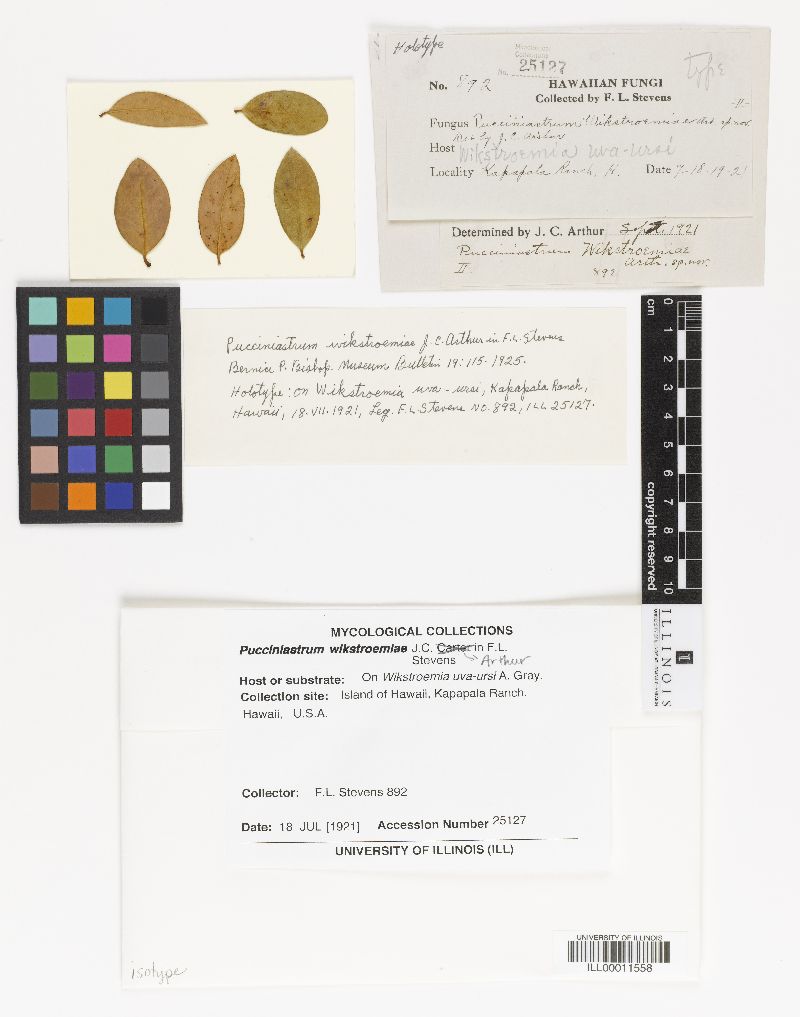 Holotype
Mycological
Collections
No. 25127
type
No. 892 HAWAIIAN FUNGI
Collected by F. L. Stevens
-II-
Fungus Pucciniastrum Wikstroemiae Arth. sp. nov.
Det by J. C. Arthur
Host Wikstroemia uva-ursi
Locality Kapapala Ranch, H. Date 7-18-19-21
Determined by J. C. Arthur Sept. 1921
Pucciniastrum Wikstroemiae
II 892 Arth. sp. nov.
Pucciniastrum wikstroemiae J. C. Arthur in F. L. Stevens
Bernice P. Bishop Museum Bulletin 19: 115. 1925.
Holotype: on Wikstroemia uva-ursi, Kapapala Ranch,
Hawaii, 18.VII.1921, Leg. F. L. Stevens no. 892, ILL 25127.
cm 0 1 2 3 4 5 6 7 8 9 10
copyright reserved
ILLINOIS
MYCOLOGICAL COLLECTIONS
Pucciniastrum wikstroemiae J.C. Carter in F.L.
Stevens Arthur
Host or substrate: On Wikstroemia uva-ursi A. Gray.
Collection site: Island of Hawaii, Kapapala Ranch.
Hawaii, U.S.A.
Collector: F.L. Stevens 892
Date: 18 JUL [1921] Accession Number 25127
UNIVERSITY OF ILLINOIS (ILL)
UNIVERSITY OF ILLINOIS
ILL00011558
isotype